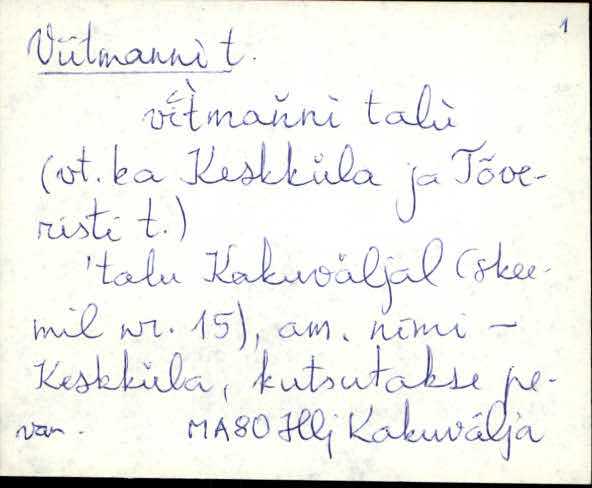 1
Viitmanni t.
vìitmaňni talù
(vt. ka Keskküla ja Tõve-
risti t.)
'talu Kakuväljal (skee-
mil nr. 15), am. nimi –
Keskküla, kutsutakse pe-
van. MA80 Hlj Kakuvälja